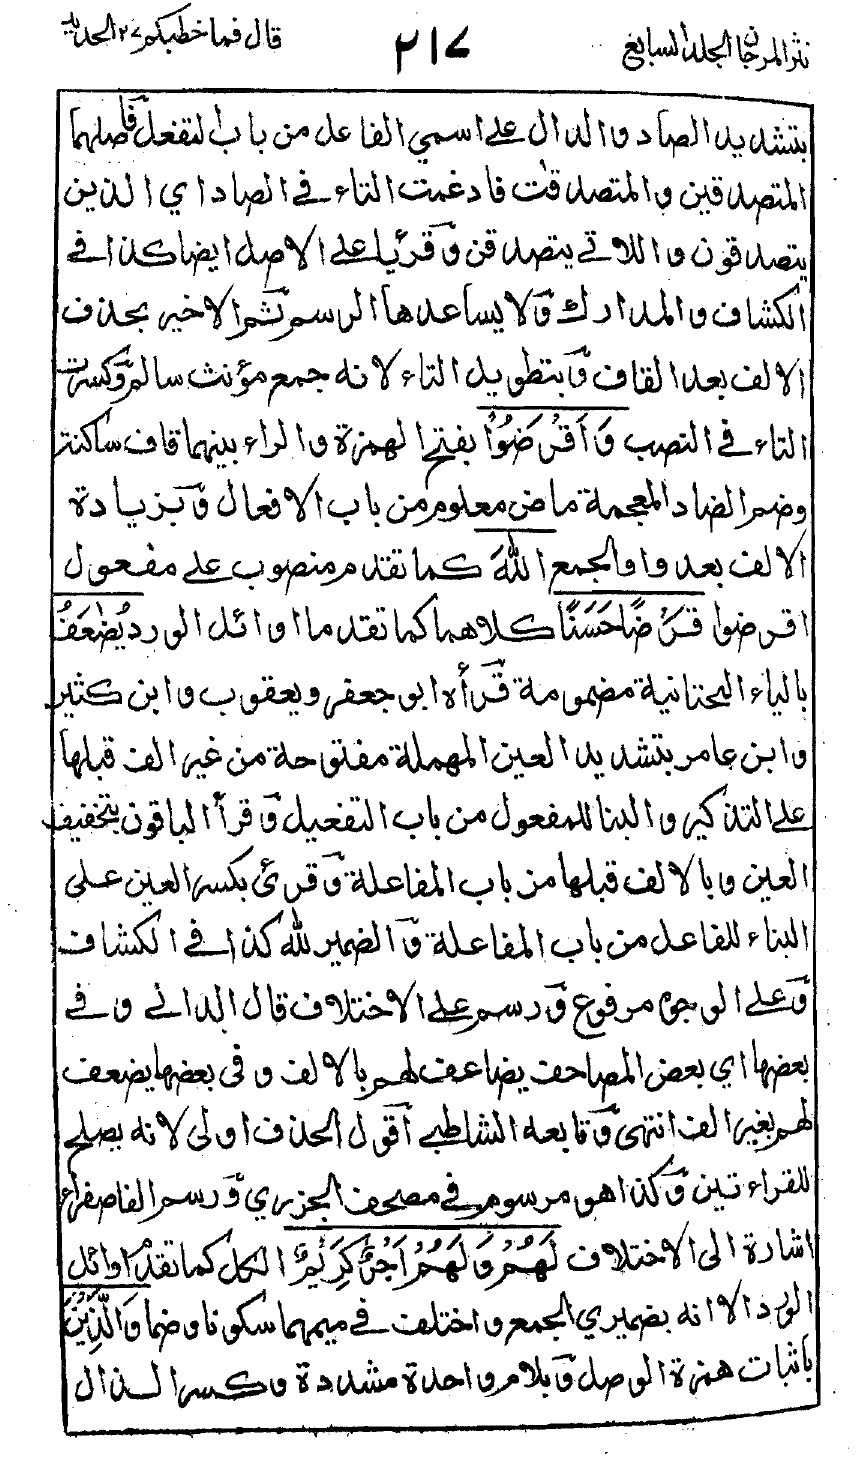 نثر المرجان الجلد السابع ٢١٧ قال فما خطبكم ٢٧ الحديد
بتشديد الصاد والدال على اسمي الفاعل من باب التفعل فاصلهما
المتصدقين والمتصدقت فادغمت التاء في الصاد اي الذين
يتصدقون واللاتي يتصدقن وقرئا على الاصل ايضا كذا في
الكشاف والمدارك ولا يساعدها الرسم ثم الاخير بحذف
الالف بعد القاف وبتطويل التاء لانه جمع مؤنث سالم وكسرت
التاء في النصب وَأَقْرَضُوا بفتح الهمزة والراء بينهما قاف ساكنة
وضم الضاد المعجمة ماض معلوم من باب الافعال وبزيادة
الالف بعد واو الجمع اللّٰهَ كما تقدم منصوب على مفعول
اقرضوا قَرْضًا حَسَنًا كلاهما كما تقدما اوائل الورد يُضٰعَفُ
بالياء التحتانية مضمومة قرأه ابو جعفر ويعقوب وابن كثير
وابن عامر بتشديد العين المهملة مفتوحة من غير الف قبلها
على التذكير والبنا للمفعول من باب التفعيل وقرأ الباقون بتخفيف
العين وبالالف قبلها من باب المفاعلة وقرئ بكسر العين على
البناء للفاعل من باب المفاعلة والضمير لله كذا في الكشاف
وعلى الوجوه مرفوع ورسم على الاختلاف قال الداني وفي
بعضها اي بعض المصاحف يضاعف لهم بالالف وفي بعضها يضعف
لهم بغير الف انتهى وتابعه الشاطبي اقول الحذف اولى لانه يصلح
للقراءتين وكذا هو مرسوم في مصحف الجزري ورسم الفا صفراء
اشارة الى الاختلاف لَهُمْ وَلَهُمْ أَجْرٌ كَرِيْمٌ الكل كما تقدم اوائل
الورد الا انه بضميري الجمع واختلف في ميمهما سكونا وضما وَالَّذِيْنَ
باثبات همزة الوصل وبلام واحدة مشددة وكسر الذال